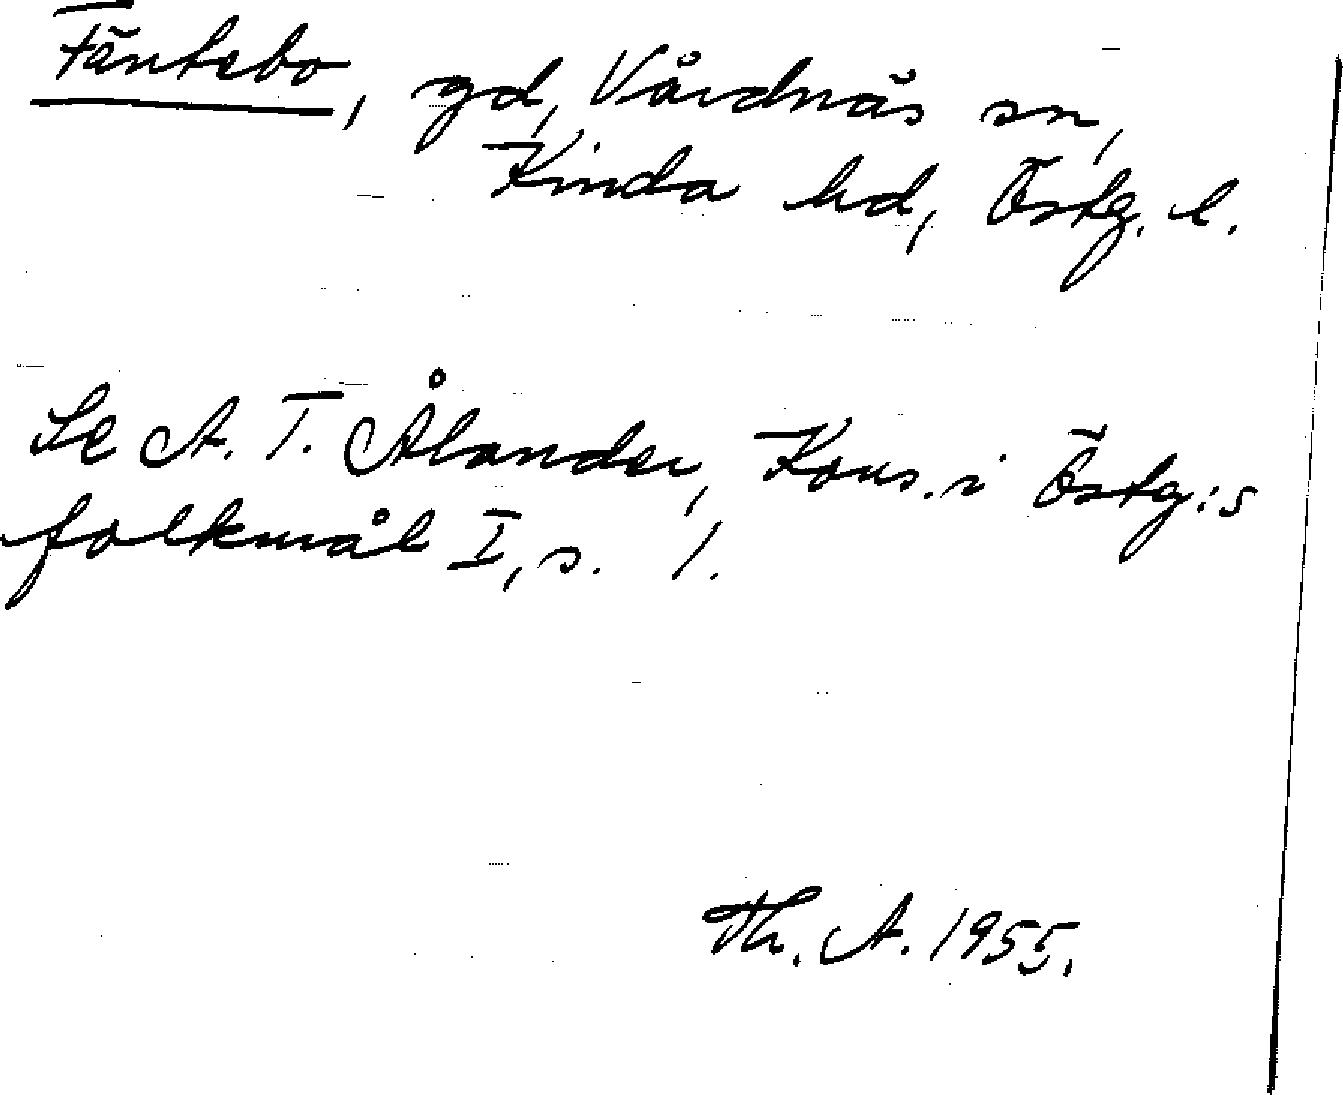 Fäntebo, gd, Vårdnäs sn,
Kinda hd, Östg. l.
Se A. T. Ålander, Kons. i Östg:s
folkmål I, s. 1.
Th. A. 1955.